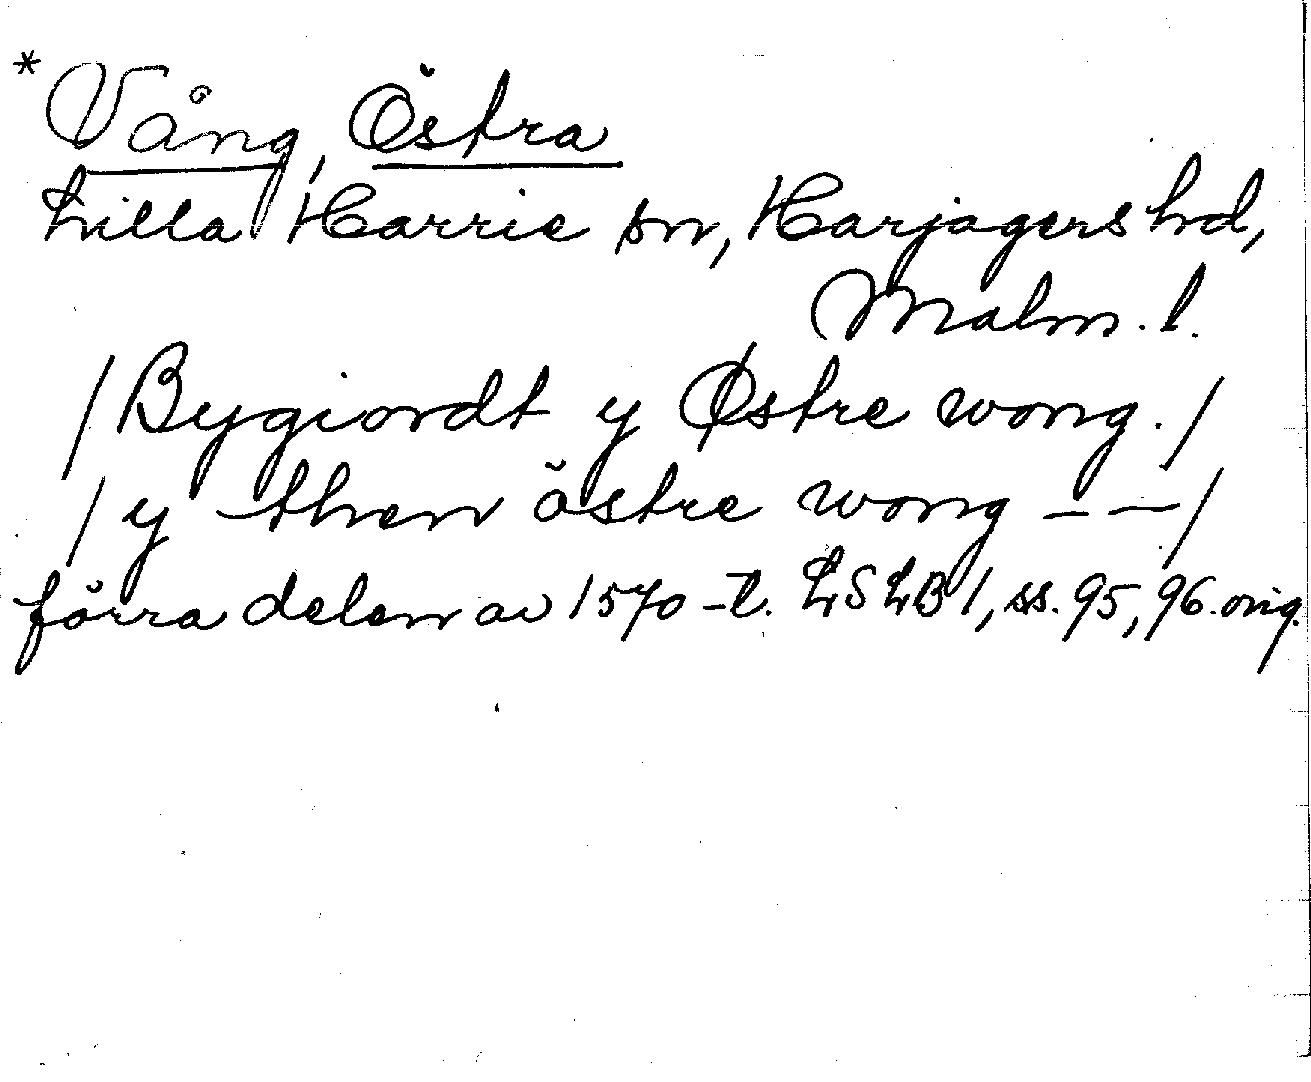 *Vång, Östra
Lilla Harrie sn, Harjagers hd,
Malm. l.
/Bygiordt y Østre wong./
/y then östre wong – –/
förra delen av 1570-t. LSLB1, ss. 95, 96. orig.